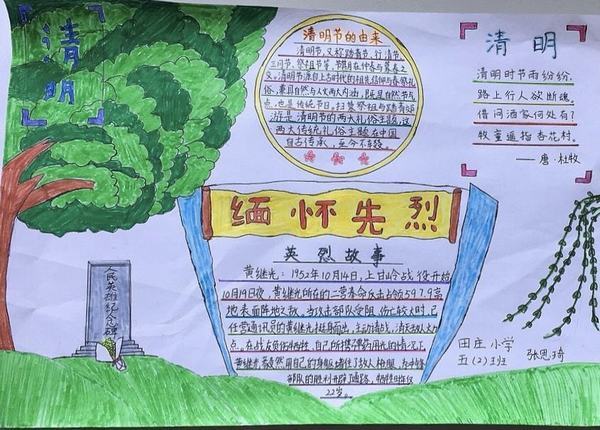 清明
清明节的由来
清明节,又称踏青节、行清节、
三月节、祭祖节等,节期在仲春与暮春之
交。清明节源自上古时代的祖先信仰与春祭礼
俗,兼具自然与人文两大内涵,既是自然节气
点,也是传统节日,扫墓祭祖与踏青郊
游是清明节的两大礼俗主题,这
两大传统礼俗主题在中国
自古传承,至今不辍。
清明
清明时节雨纷纷,
路上行人欲断魂。
借问酒家何处有?
牧童遥指杏花村。
——唐·杜牧
缅怀先烈
英烈故事
黄继光:1952年10月14日,上甘岭战役开始
10月19日夜,黄继光所在的二营奉命反击占领597.9高
地表面阵地之敌,当攻击部队受阻,伤亡较大时,已
任营通讯员的黄继光挺身而出,主动请战,消灭敌火力
点。在战友负伤牺牲,自己所携弹药用光的情况下,
黄继光毅然用自己的身躯堵住了敌人枪眼,为冲锋
部队的胜利开辟了通路,牺牲时年仅
22岁。
人民英雄纪念碑
田庄小学
五(2)班
张思琦